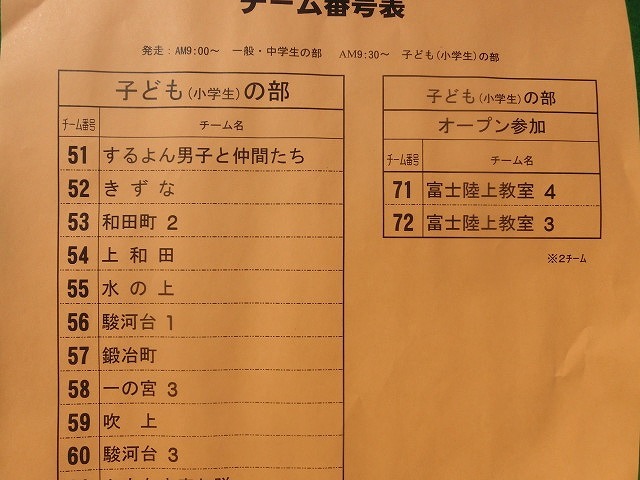 チーム番号表
発走：AM9:00～　一般・中学生の部　AM9:30～　子ども(小学生)の部
子ども(小学生)の部
チーム番号　チーム名
51　するよん男子と仲間たち
52　きずな
53　和田町 2
54　上和田
55　水の上
56　駿河台 1
57　鍛冶町
58　一の宮 3
59　吹　上
60　駿河台 3
子ども(小学生)の部
オープン参加
チーム番号　チーム名
71　富士陸上教室 4
72　富士陸上教室 3
※2チーム